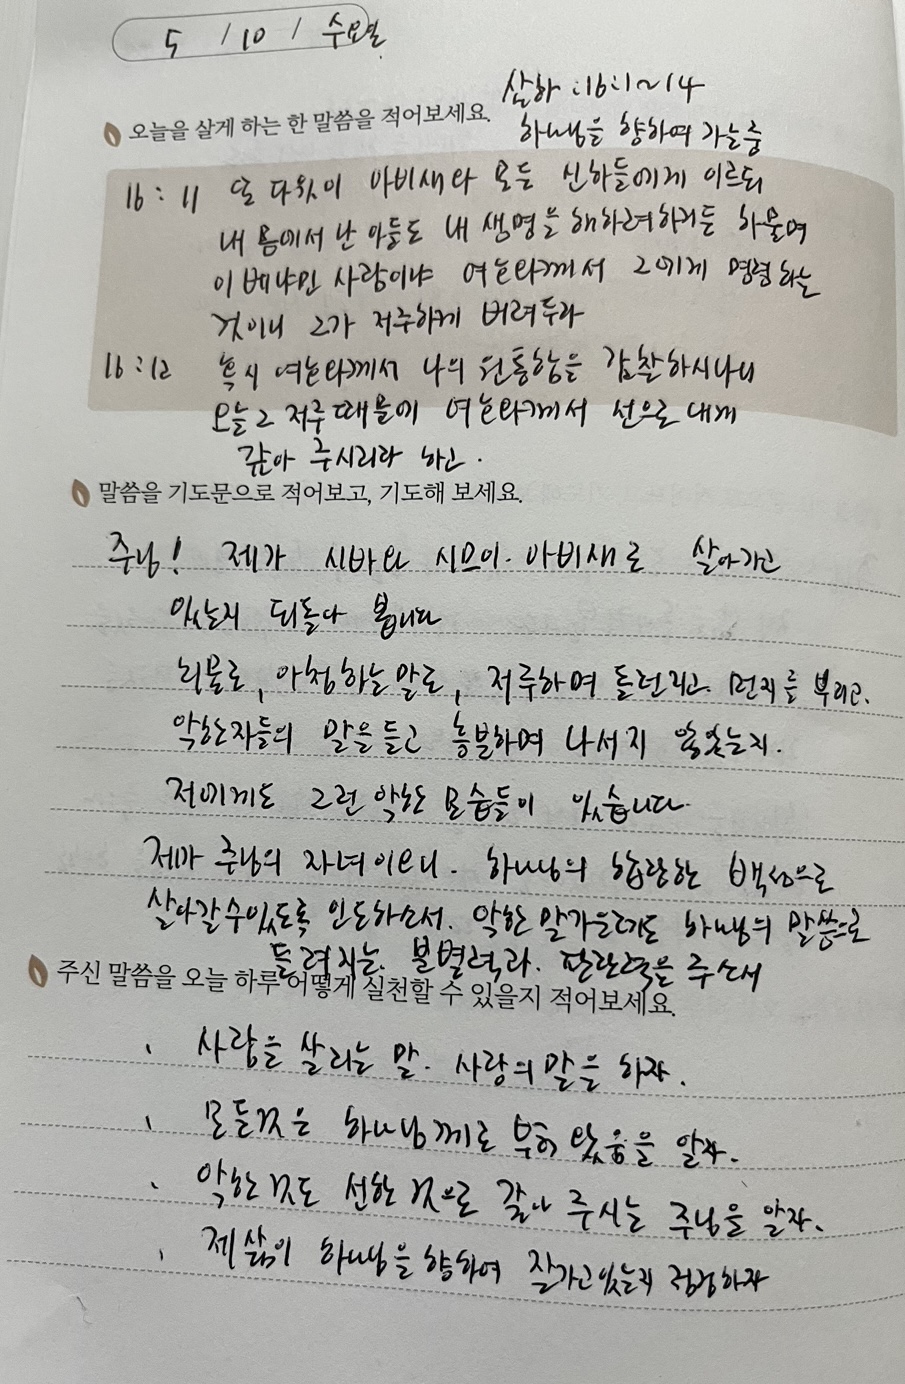 5 / 10 / 수요일
삼하 :16:1~14
오늘을 살게 하는 한 말씀을 적어보세요.
하나님을 향하여 가는중
16:11 또 다윗이 아비새와 모든 신하들에게 이르되
내 몸에서 난 아들도 내 생명을 해하려하거든 하물며
이 베냐민 사람이냐 여호와께서 그에게 명령하는
것이니 그가 저주하게 버려두라
16:12 혹시 여호와께서 나의 원통함을 감찰하시나니
오늘 그 저주 때문에 여호와께서 선으로 내게
갚아 주시리라 하고.
말씀을 기도문으로 적어보고, 기도해 보세요.
주님! 제가 시바와 시므이. 아비새로 살아가고
있는지 되돌아 봅니다
뇌물로, 아첨하는 말로, 저주하며 돌던지고. 먼지를 뿌리고.
악한자들의 말을 듣고 흥분하며 나서지 않았는지.
저에게도 그런 악한 모습들이 있습니다.
제가 주님의 자녀이오니. 하나님의 합당한 백성으로
살아갈수있도록 인도하소서. 악한 말가운데도 하나님의 말씀으로
들려지는. 분별력과. 판단력을 주소서
주신 말씀을 오늘 하루 어떻게 실천할 수 있을지 적어보세요.
, 사람을 살리는 말. 사랑의 말을 하자.
, 모든것은 하나님께로 부터 왔음을 알자.
. 악한 것도 선한 것으로 갚아 주시는 주님을 알자.
, 제 삶이 하나님을 향하여 잘가고있는지 점검하자